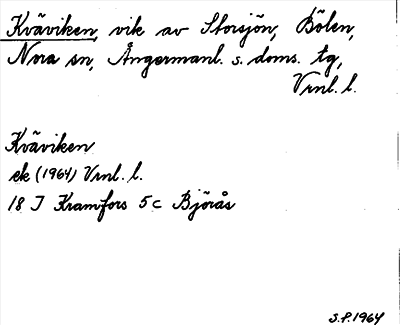 Kväviken, vik av Storsjön, Bölen,
Nora sn, Ångermanl. s. doms. tg,
Vrnl. l.
Kväviken
ek (1964) Vrnl. l.
18 J Kramfors 5 c Björås
S.P. 1964